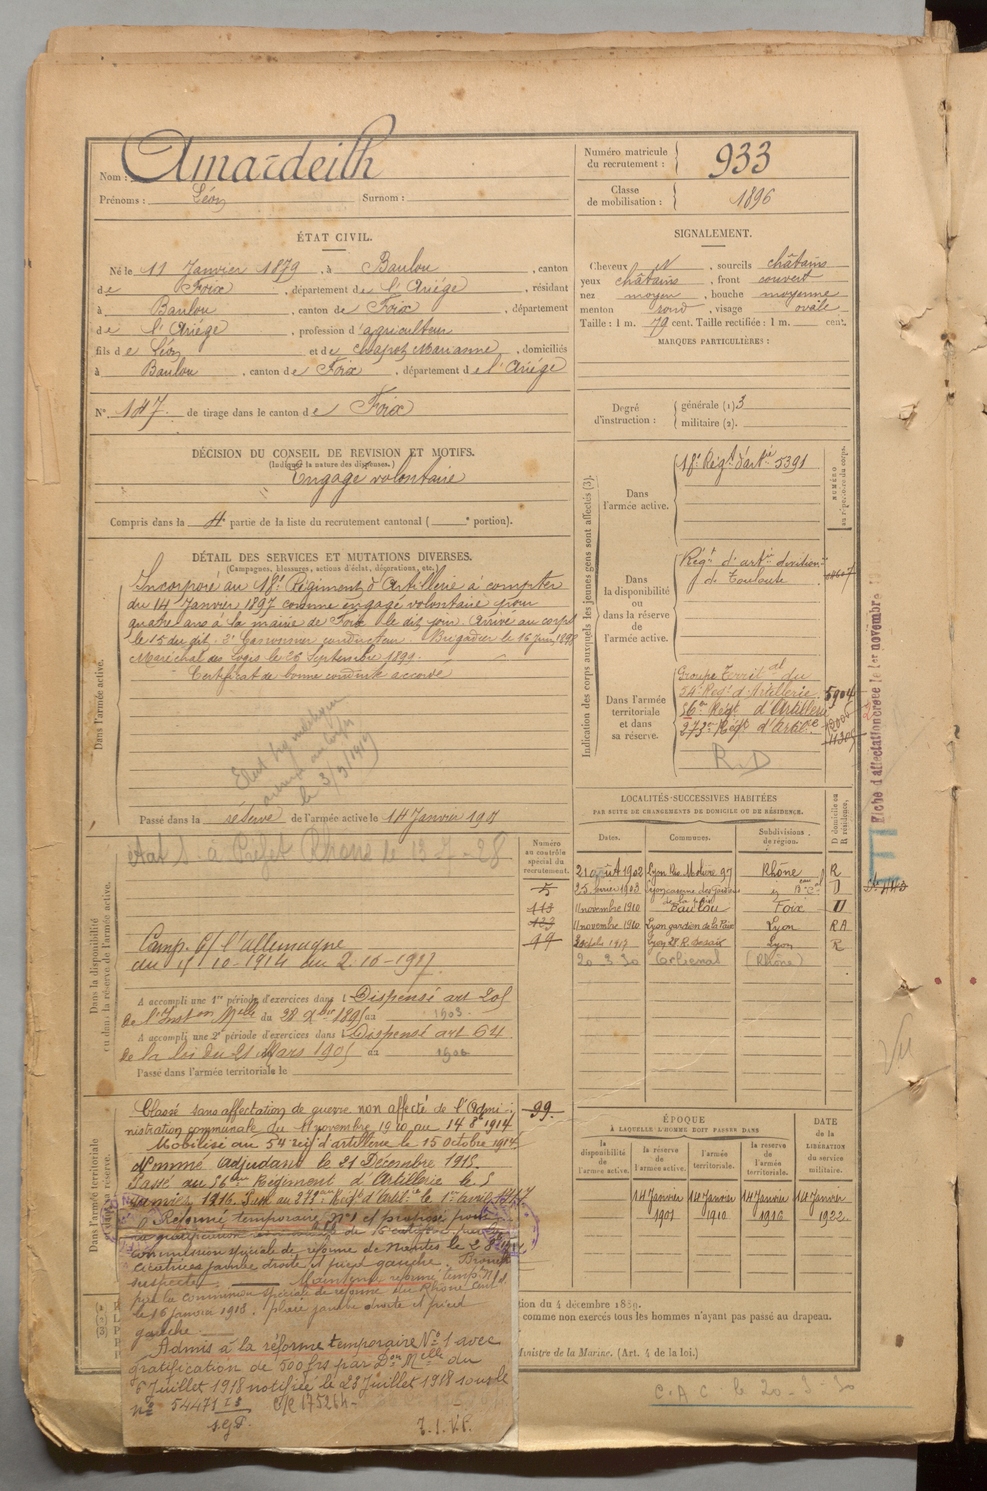 Nom : Amardeilh
Prénoms : Léon Surnom :
Numéro matricule du recrutement : 933
Classe de mobilisation : 1896
ÉTAT CIVIL.
Né le 11 Janvier 1879, à Baulou, canton
de Foix, département de l'Ariège, résidant
à Baulou, canton de Foix, département
de l'Ariège, profession d'agriculteur
fils de Léon et de Chapet Marianne, domiciliés
à Baulou, canton de Foix, département de l'Ariège
N° 147 de tirage dans le canton de Foix
SIGNALEMENT.
Cheveux N, sourcils châtains
yeux châtains, front couvert
nez moyen, bouche moyenne
menton rond, visage ovale
Taille : 1 m. 79 cent. Taille rectifiée : 1 m. cent.
MARQUES PARTICULIÈRES :
Degré d'instruction : générale (1) 3
militaire (2).
DÉCISION DU CONSEIL DE REVISION ET MOTIFS.
(Indiquer la nature des dispenses.)
Engagé volontaire
Compris dans la 4e partie de la liste du recrutement cantonal ( e portion).
DÉTAIL DES SERVICES ET MUTATIONS DIVERSES.
(Campagnes, blessures, actions d'éclat, décorations, etc.)
Dans l'armée active.
Incorporé au 18e Régiment d'Artillerie à compter
du 14 Janvier 1897 comme engagé volontaire pour
quatre ans à la mairie de Foix le dit jour. Arrivé au corps
le 15 du dit. 2e Canonnier conducteur. Brigadier le 16 Juin 1898
Maréchal des Logis le 26 Septembre 1899.
Certificat de bonne conduite accordé
le 3/3/1917
Passé dans la réserve de l'armée active le 14 Janvier 1901
Indication des corps auxquels les jeunes gens sont affectés (3).
NUMÉRO au répertoire du corps.
Dans l'armée active.
18e Régt d'artie 5391
Dans la disponibilité ou dans la réserve de l'armée active.
Régt d'artie division
de Toulouse
Dans l'armée territoriale et dans sa réserve.
Groupe Territal du
54e Régt d'Artillerie 5904
56e Régt d'Artillerie
273e Régt d'Artie
R.D
Fiche d'affectation créée le 1er novembre
Dans la disponibilité ou dans la réserve de l'armée active.
Numéro au contrôle spécial du recrutement.
état S. à Préfet Rhône le 13-7-28
5
113
123
99
Camp. c/ l'allemagne
du 15-10-1914 au 2-10-1917.
A accompli une 1re période d'exercices dans l Dispensé art 205
de l'Inston Mlle du 28 Xbre 1895 au 1903
A accompli une 2e période d'exercices dans l Dispensé art 64
de la loi du 21 Mars 1905 au 1906
Passé dans l'armée territoriale le
LOCALITÉS SUCCESSIVES HABITÉES
PAR SUITE DE CHANGEMENTS DE DOMICILE OU DE RÉSIDENCE.
Dates. Communes. Subdivisions de région. D domicile ou R résidence.
21 août 1902 Lyon Rue Molière 97 Rhône R
25 février 1903 D
11 novembre 1910 Baulou Foix D
11 novembre 1910 Lyon gardien de la Paix Lyon RA
2 octobre 1917 Lyon 28 R. Desaix Lyon R
20-3-30 Arsenal (Rhône)
Dans l'armée territoriale et dans sa réserve.
Classé sans affectation de guerre non affecté de l'Admi- 99
nistration communale du 11 novembre 1910 au 14 8bre 1914.
Mobilisé au 54e rég d'artillerie le 15 octobre 1914.
Nommé adjudant le 21 Décembre 1915.
Passé au 56ème Régiment d'Artillerie le 5
Janvier 1916. Passé au 273ème Régt d'Artie le 1er Avril 1917
Réformé temporaire N°1 et proposé pour
commission spéciale de réforme de Nantes le 2 8bre
cicatrices jambe droite et pied gauche. Bronch
suspecte. Maintenu réformé temp. N°1
par la commission spéciale de réforme du Rhône
le 16 janvier 1918 : plaie jambe droite et pied
gauche
Admis à la réforme temporaire N°1 avec
gratification de 500 frs par Don Mlle du
6 Juillet 1918 notifiée le 23 Juillet 1918 sous le
N° 54471
ÉPOQUE
À LAQUELLE L'HOMME DOIT PASSER DANS
la disponibilité de l'armée active. la réserve de l'armée active. l'armée territoriale. la réserve de l'armée territoriale.
DATE de la LIBÉRATION DU service militaire.
14 Janvier 1901 14 Janvier 1910 14 Janvier 1916 14 Janvier 1922
tion du 4 décembre 1889.
comme non exercés tous les hommes n'ayant pas passé au drapeau.
Ministre de la Marine. (Art. 4 de la loi.)
C.A.C. le 20-3-30
Vu